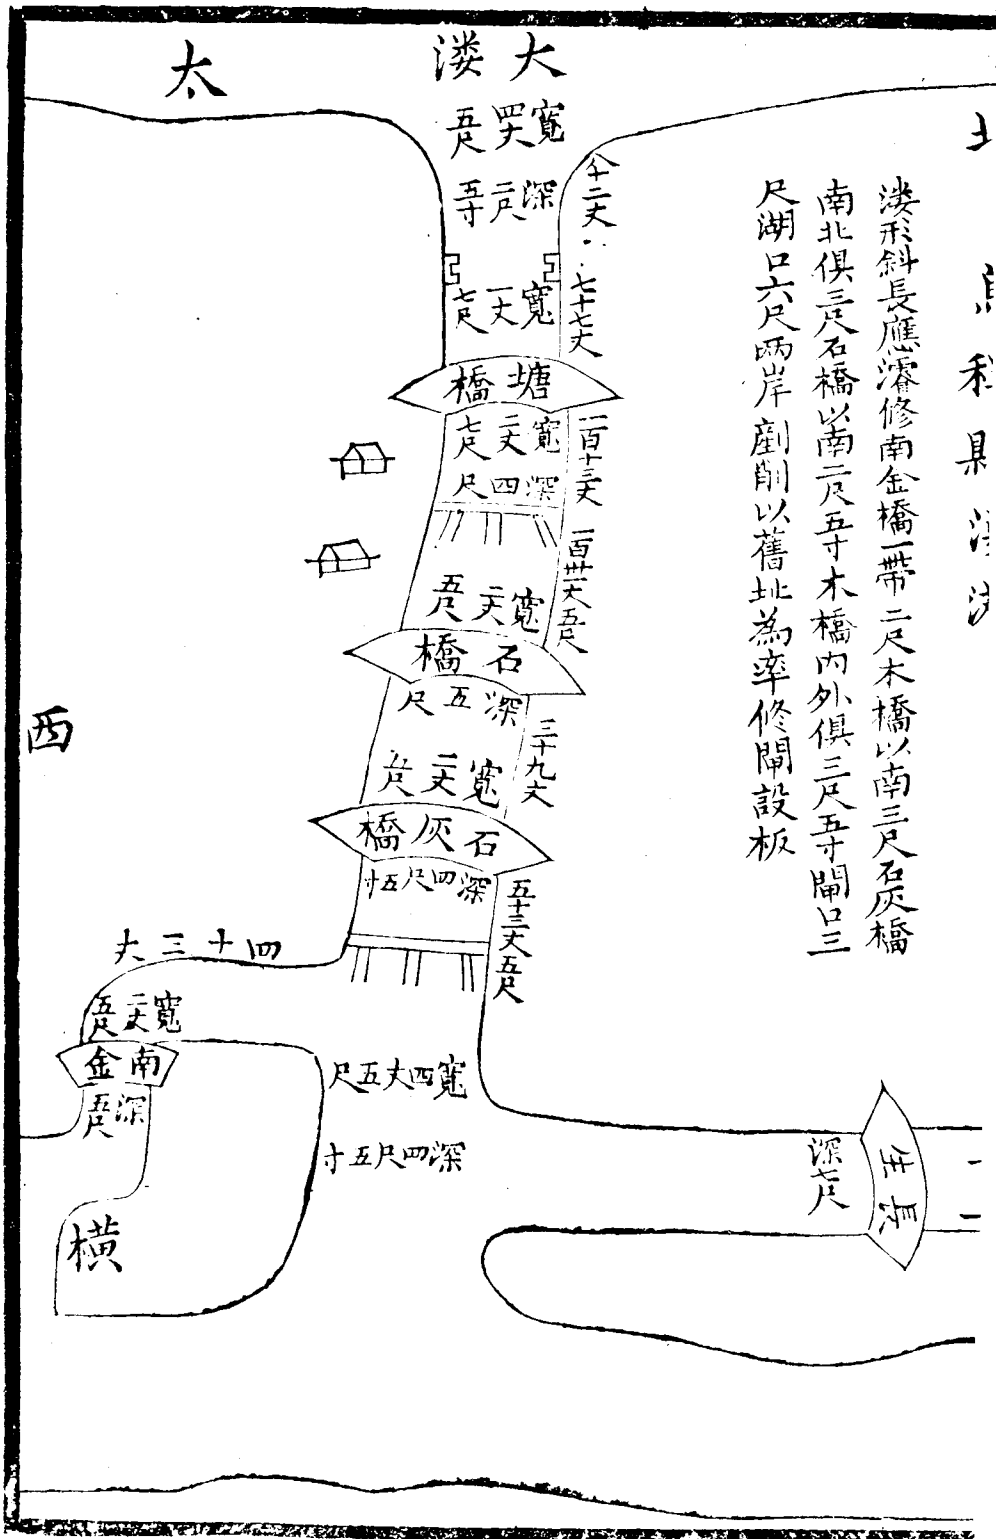 北
溇形斜長應濬修南金橋一帶二尺木橋以南三尺石灰橋
南北俱三尺石橋以南二尺五寸木橋內外俱三尺五寸閘口三
尺湖口六尺兩岸剷削以舊址為率修閘設板
大溇
太
寬四丈五尺
深二尺五寸
七十七丈
寬一丈七尺
塘橋
寬二丈七尺
深四尺
一百十三丈
一百卅一丈五尺
寬二丈五尺
石橋
深五尺
三十九丈
寬二丈五尺
石灰橋
深四尺五寸
五十三丈五尺
西
四十三丈
寬二丈五尺
南金
深五尺
寬四丈五尺
深四尺五寸
橫
深七尺
長生